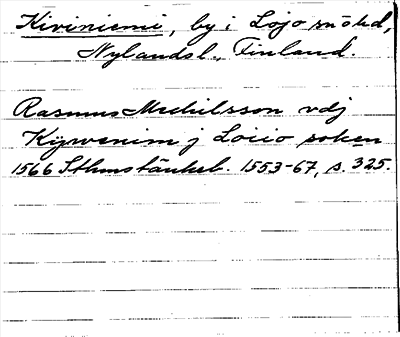 Kiviniemi, by i Lojo snöhd,
Nylands l., Finland.
Rasmus Michilsson vdj
Kÿwenim j Loiio soken
1566 Sthms tänkeb. 1553-67, s. 325.